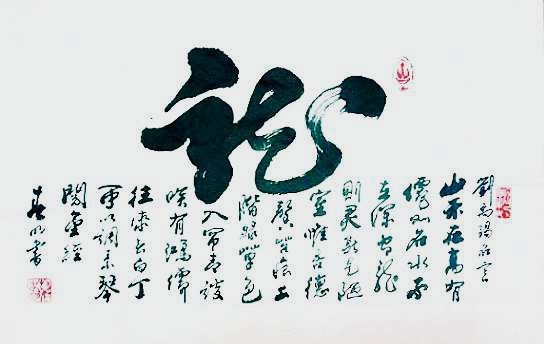 龍
劉禹錫
山不在高有
僊则名水不
在深有龍
則灵斯是陋
室惟吾德
馨苔痕上
階緑草色
入帘青談
咲有鴻儒
往來无白丁
可以調素琴
閱金經
書